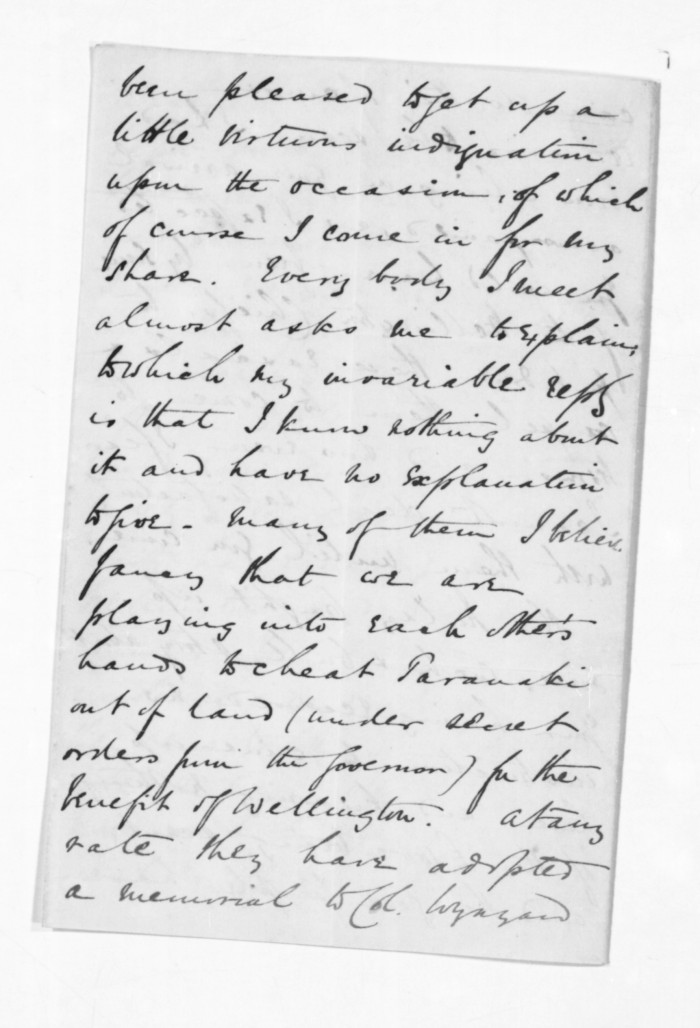 been pleased to get up a
little virtuous indignation
upon the occasion, of which
of course I come in for my
share. Every body I meet
almost asks me to explain,
to which my invariable reply
is that I know nothing about
it and have no explanation
to give - many of them I believe
fancy that we are
playing into each other's
hands to cheat Taranaki
out of land (under secret
orders from the Governor) for the
benefit of Wellington. at any
rate they have adopted
a memorial to Col. Wynyard